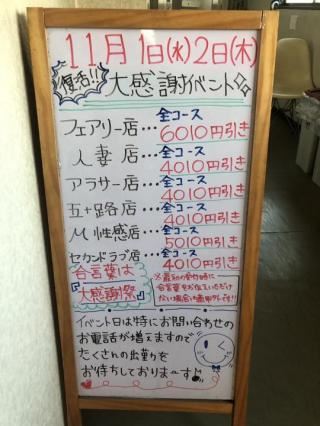 11月1日(水)2日(木)
復活!! 大感謝イベント
フェアリー店…全コース6010円引き
人妻店…全コース4010円引き
アラサー店…全コース4010円引き
五十路店…全コース4010円引き
M性感店…全コース5010円引き
セカンドラブ店…全コース4010円引き
合言葉は
『大感謝祭』
※最初の受付時に
合言葉をお伝えいただけ
ない場合は適用外です!!
イベント日は特にお問い合わせの
お電話が増えますので
たくさんの出勤を
お待ちしておりまーす♪